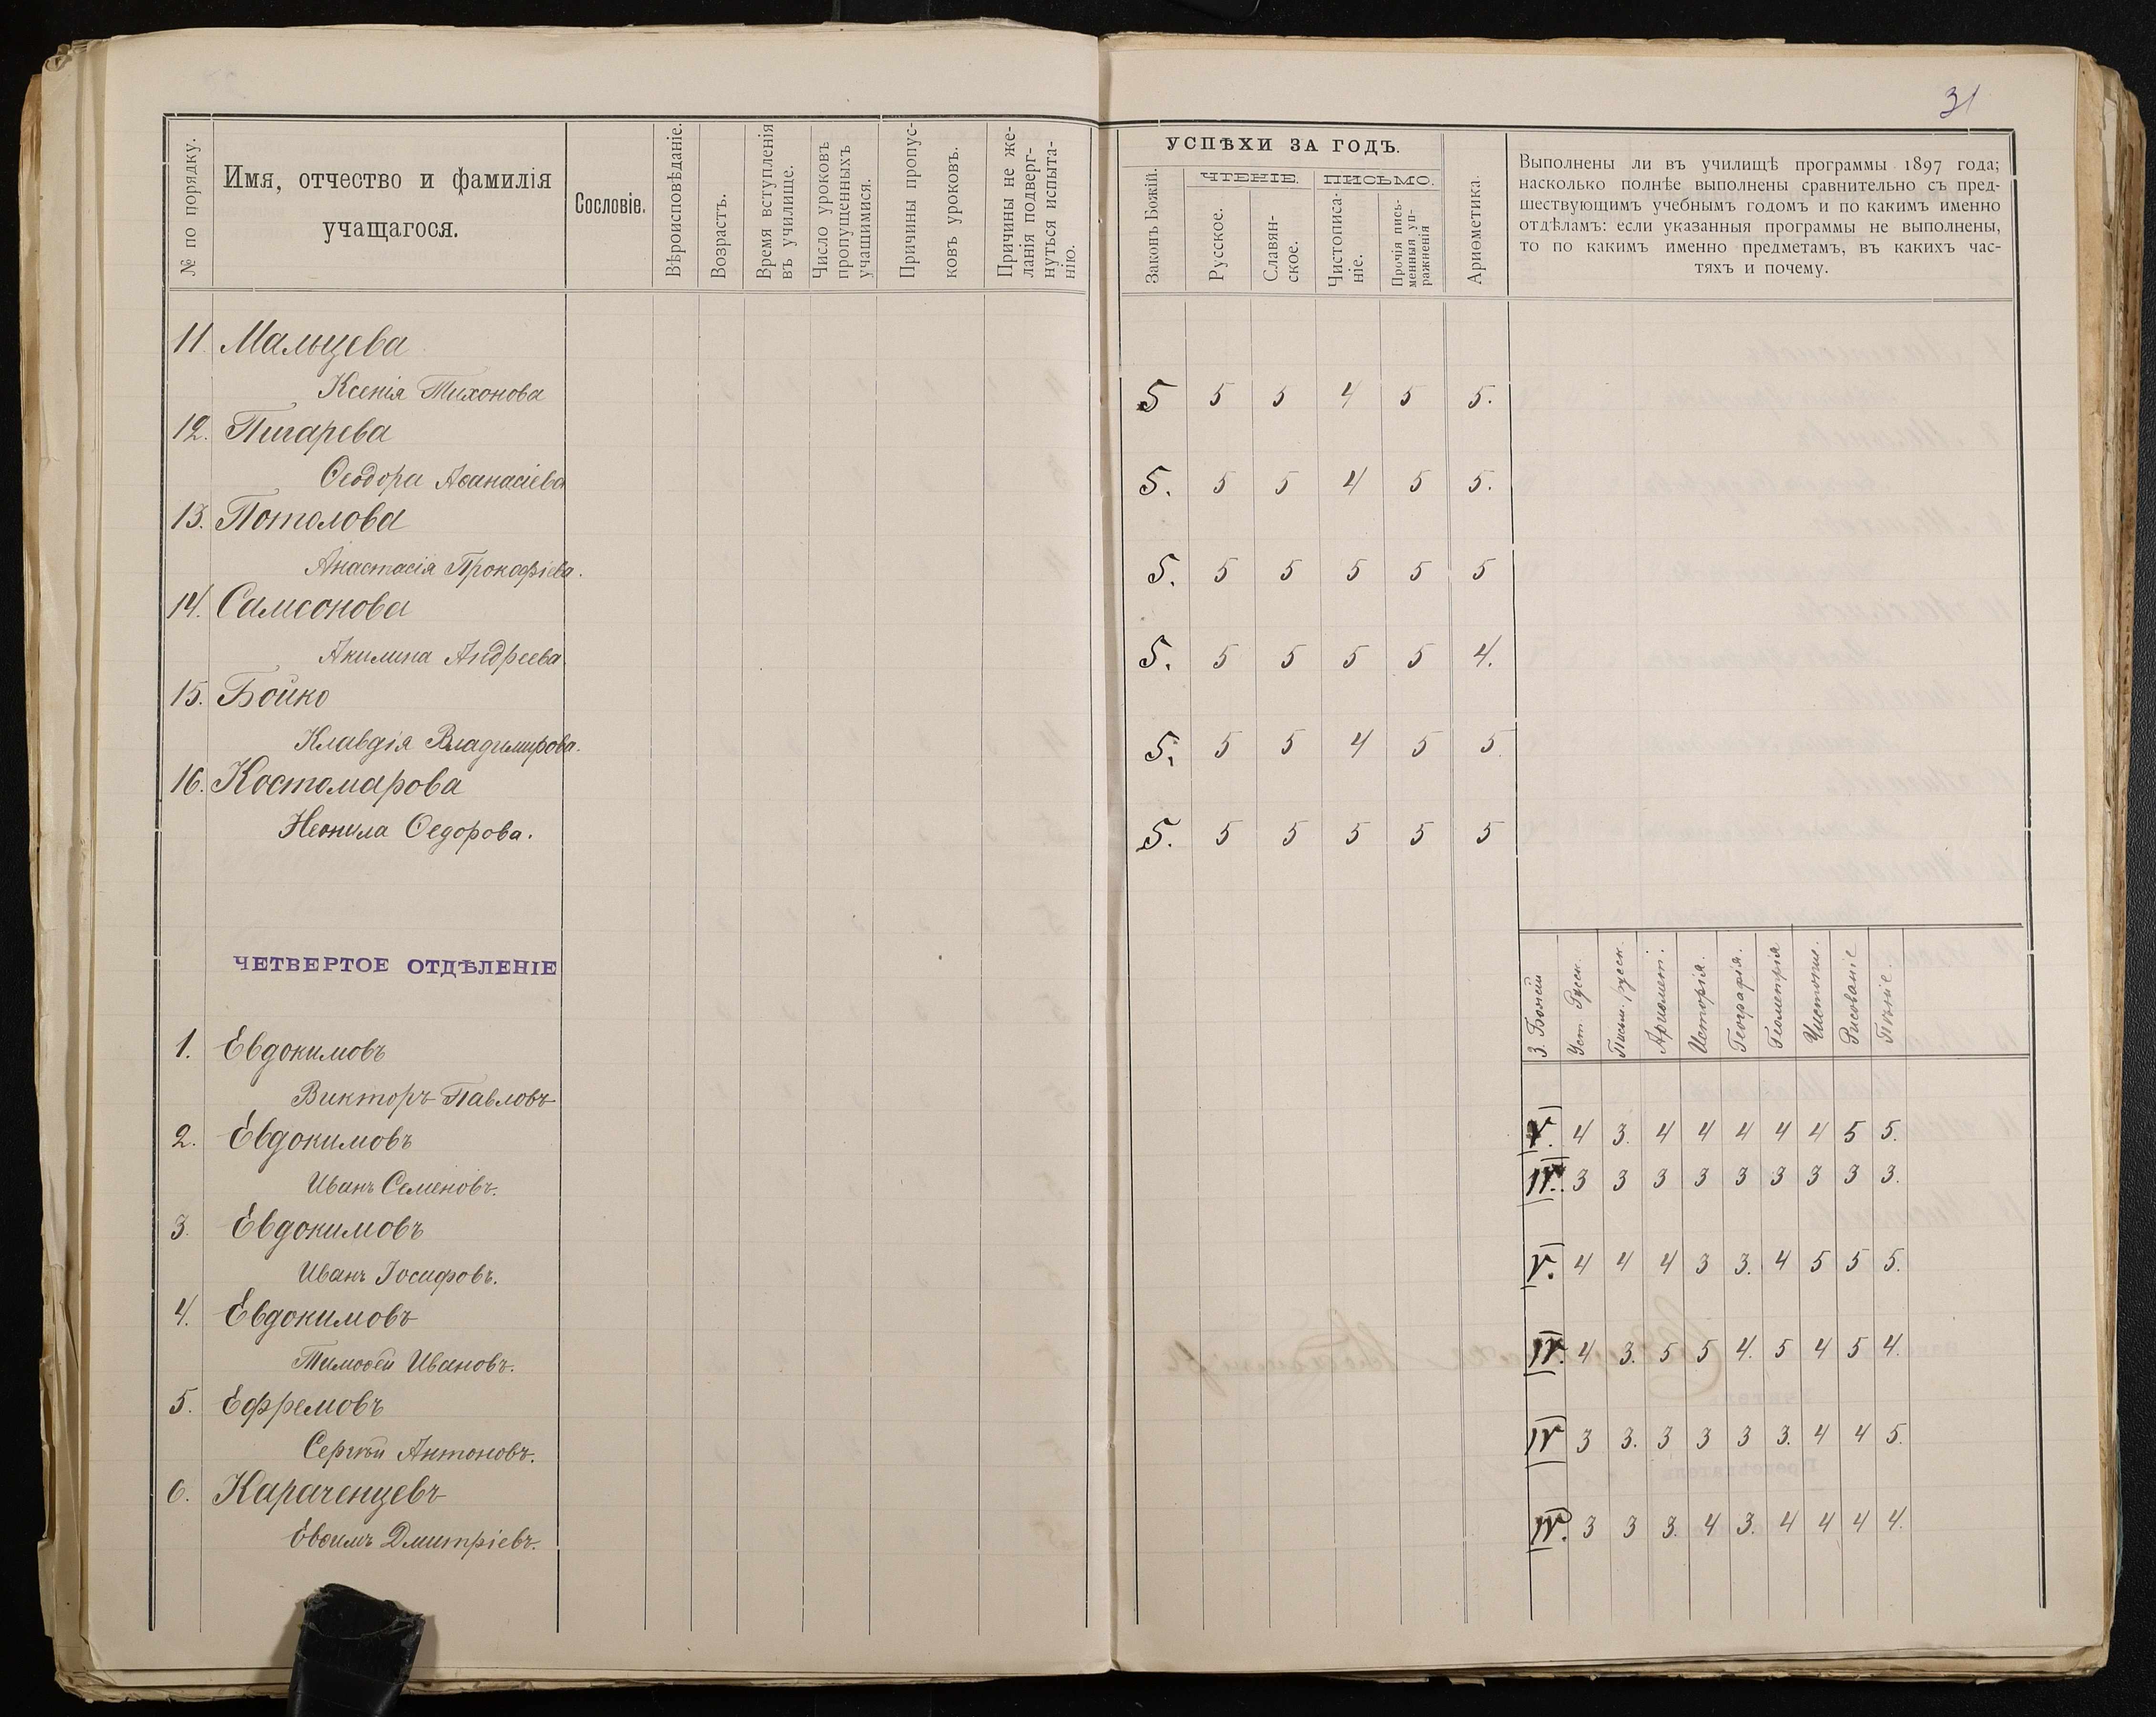 31
№ по порядку.
Имя, отчество и фамилія
учащагося.
Сословіе.
Вѣроисповѣданіе.
Возрастъ.
Время вступленія
въ училище.
Число уроковъ
пропущенныхъ
учащимися.
Причины пропус-
ковъ уроковъ.
Причины не же-
ланія подверг-
нуться испыта-
нію.
УСПѢХИ ЗА ГОДЪ.
Законъ Божій.
ЧТЕНІЕ.
Русское.
Славян-
ское.
ПИСЬМО.
Чистописа-
ніе.
Прочія пись-
менныя уп-
ражненія
Ариѳметика.
Выполнены ли въ училищѣ программы 1897 года;
насколько полнѣе выполнены сравнительно съ пред-
шествующимъ учебнымъ годомъ и по какимъ именно
отдѣламъ: если указанныя программы не выполнены,
то по какимъ именно предметамъ, въ какихъ час-
тяхъ и почему.
11. Мальцева
Ксенія Тихонова 5 5 5 4 5 5.
12. Пигарева
Ѳеодора Аѳанасіева 5. 5 5 4 5 5.
13. Потолова
Анастасія Прокофіева. 5. 5 5 5 5 5
14. Самсонова
Акилина Андреева 5. 5 5 5 5 4.
15. Бойко
Клавдія Владимирова. 5. 5 5 4 5 5.
16. Костомарова
Неонила Ѳедорова. 5. 5 5 5 5 5
ЧЕТВЕРТОЕ ОТДѢЛЕНІЕ
З. Божій
Уст. Русск.
Письм. русск.
Ариѳмет.
Исторія.
Географія.
Геометрія
Чистопис.
Рисованіе
Пѣніе.
1. Евдокимовъ
Викторъ Павловъ
V. 4 3. 4 4 4 4 4 5 5.
2. Евдокимовъ
Иванъ Семеновъ. IV. 3 3 3 3 3 3 3 3 3.
3. Евдокимовъ
Иванъ Іосифовъ. V. 4 4 4 3 3. 4 5 5 5.
4. Евдокимовъ
Тимоѳей Ивановъ. IV. 4 3. 5 5 4. 5 4 5 4.
5. Ефремовъ
Сергѣй Антоновъ. IV 3 3. 3 3 3 3. 4 4 5.
6. Караченцевъ
Евѳимъ Дмитріевъ. IV. 3 3 3. 4 3. 4 4 4 4.